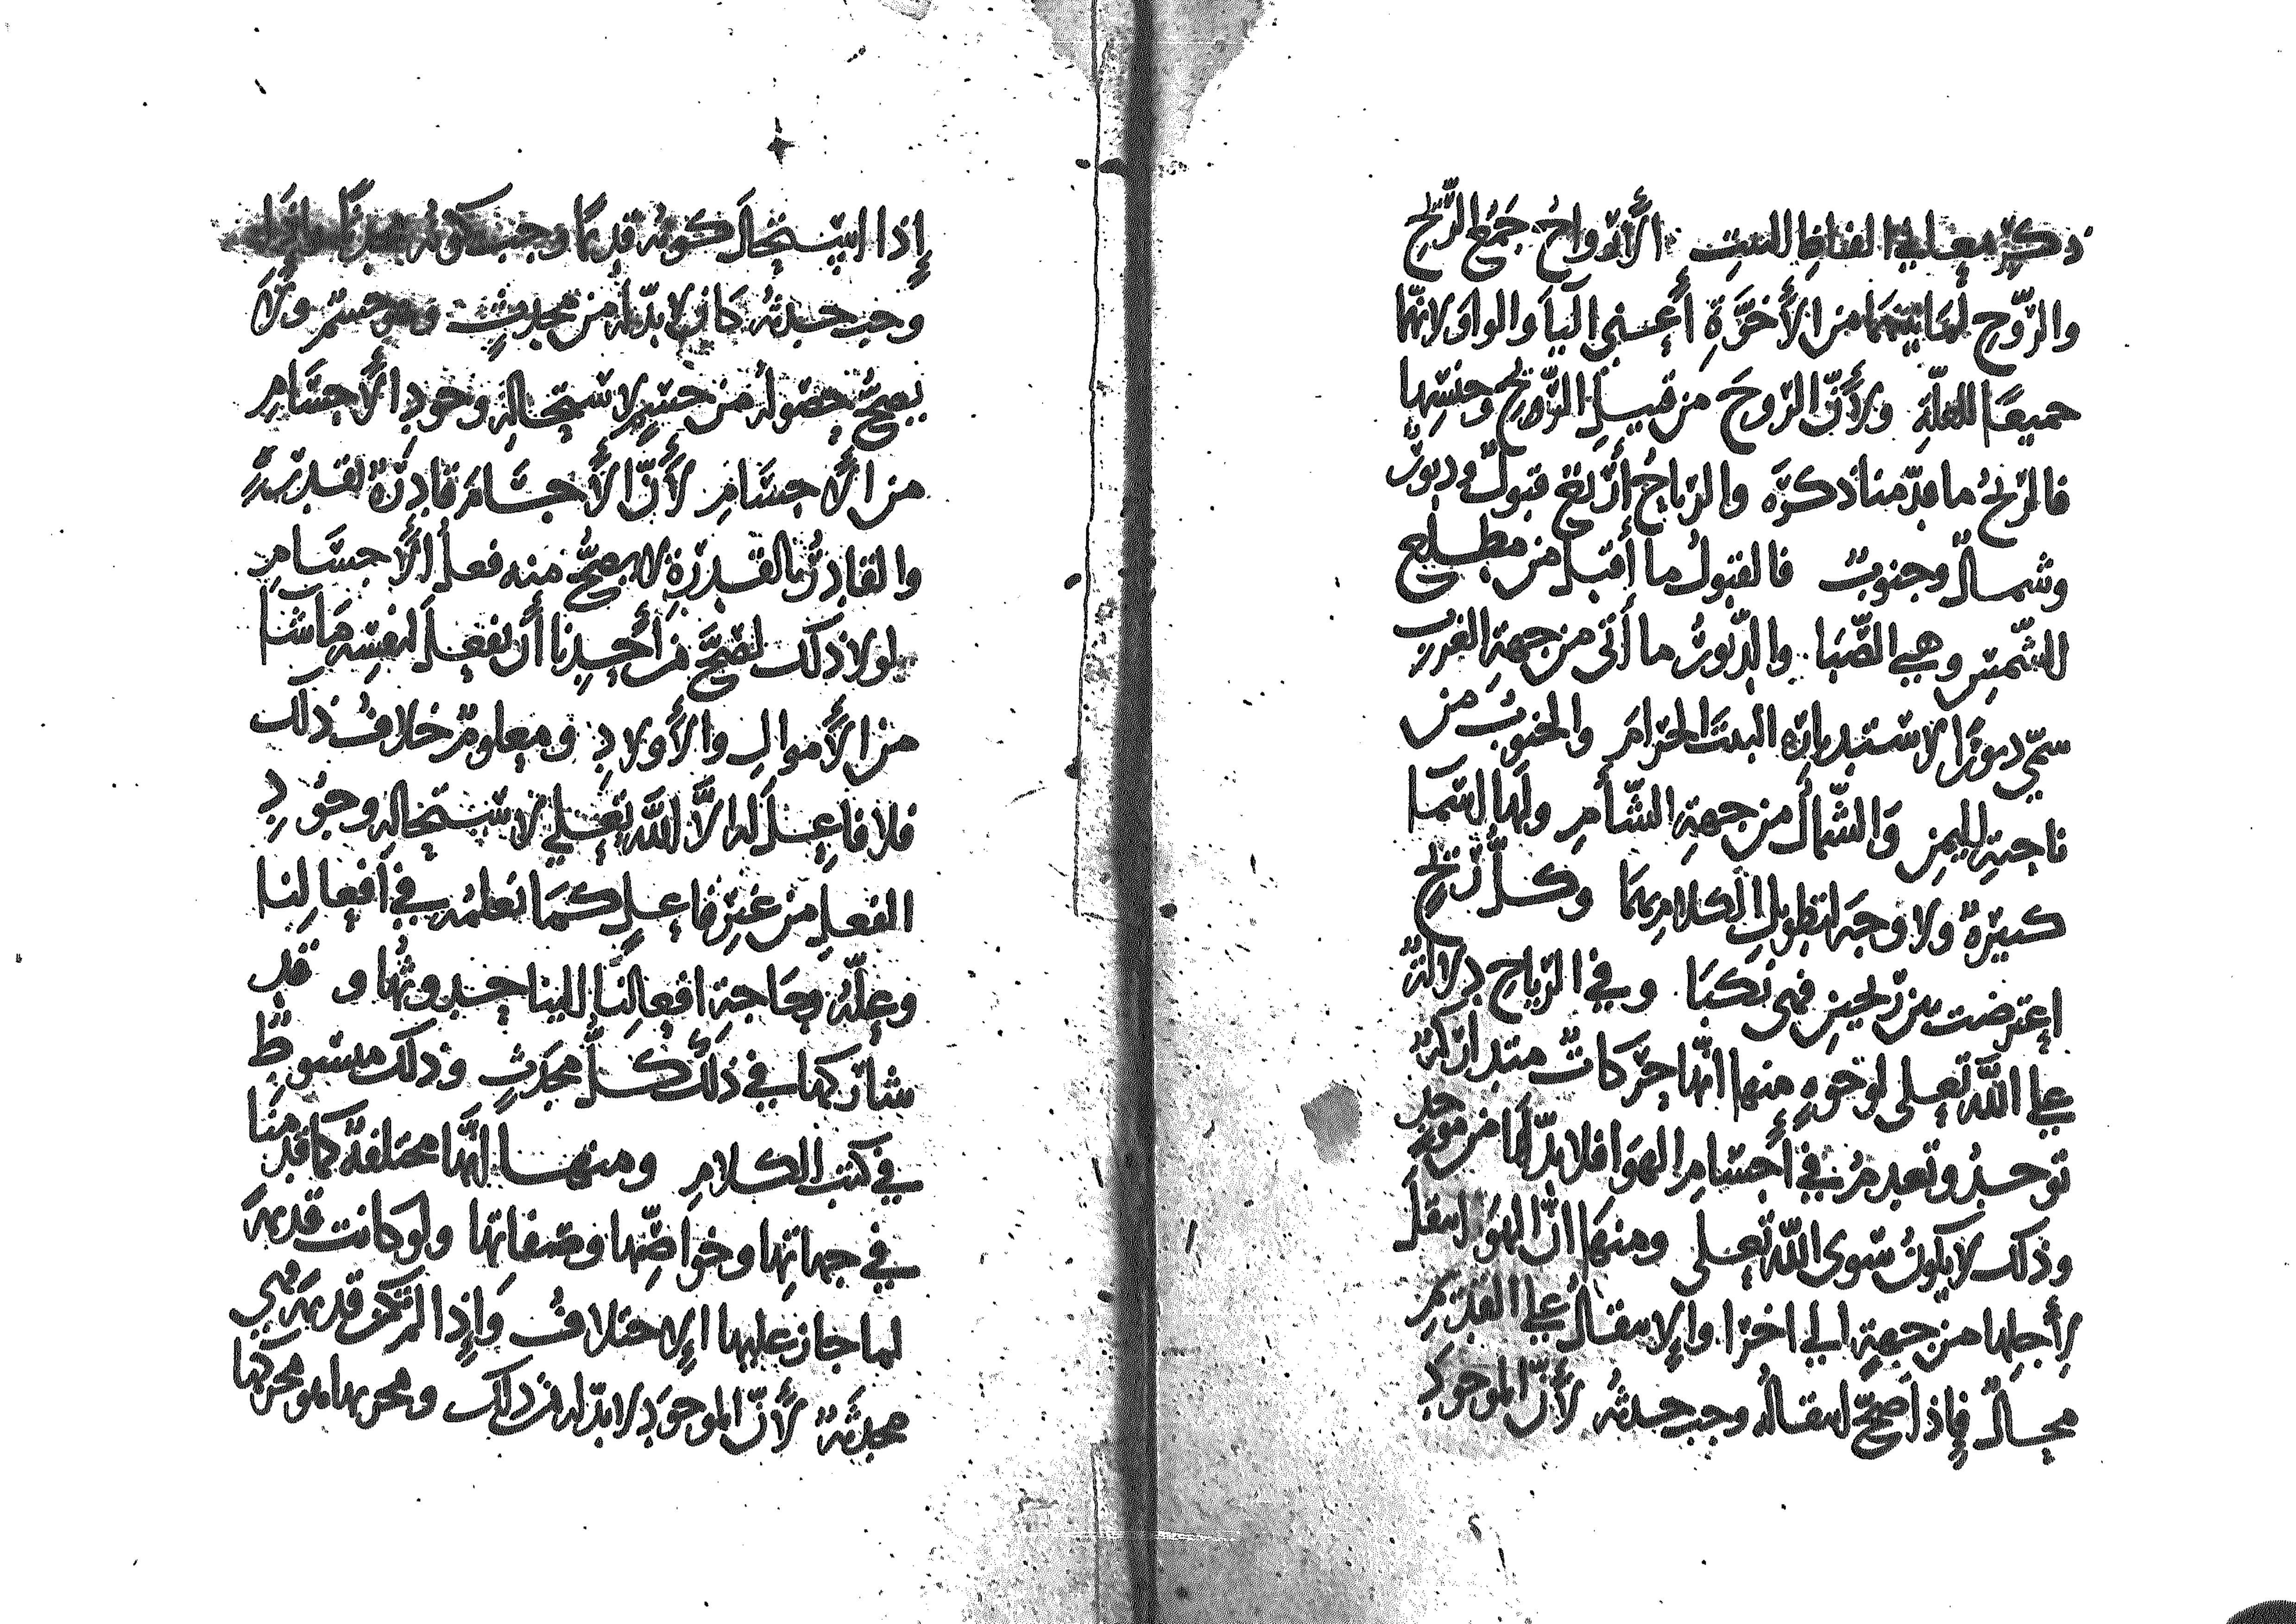 ذكر معاني الفاظ البيت الأرواح جمع الريح
والروح لما بينهما من الأخوة أعني اليا والواو لانهما
جميعًا للعلة ولأن الروح من قبيل الريح وجنسها
فالريح ما قدمنا ذكره والرياح أربع قبول ودبور
وشمال وجنوب فالقبول ما أقبل من مطلع
الشمس وهي الصبا والدبور ما أتى من جهة الغرب
سمي دبورًا لاستدباره البيت الحرام والجنوب من
ناحية اليمن والشمأل من جهة الشأم ولها اسما
كثيرة ولا وجه لتطويل الكلام بها وكل ريح
اعترضت بين ريحين فهي نكبا وفي الرياح دلالة
على الله تعلى لوجوه منها انها حركات متداركة
توجد وتعدم في أجسام الهوا فلا بد لها من موجد
وذلك لا يكون سوى الله تعلى ومنها ان الهوا ينتقل
لأجلها من جهة الى اخرا والانتقال على القديم
محال فإذا صح انتقاله وجب حدثه لأن الموجود
إذا استحال كونه قديمًا وجب كونه محدثًا وإذا
وجب حدثه كان لا بد له من محدث وهو جسم ولا
يصح حصوله من جسم لاستحالة وجود الأجسام
من الأجسام لأن الأجسام قادرة بقدرة
والقادر بالقدرة لا يصح منه فعل الأجسام
ولولا ذلك لصح من أحدنا أن يفعل لنفسه ما شا
من الأموال والأولاد ومعلوم خلاف ذلك
فلا فاعل له الا الله تعلى لاستحالة وجود
الفعل من غير فاعل كما نعلمه في أفعالنا
وعلة حاجة افعالنا الينا حدوثها وقد
شاركها في ذلك كل محدث وذلك مبسوط
في كتب الكلام ومنها انها مختلفة كما قدمنا
في جهاتها وخواصها وصفاتها ولو كانت قديمة
لما جاز عليها الإختلاف وإذا لم تكن قديمة فهي
محدثة لأن الموجود لا بد له من ذلك ومحدثها هو محركها